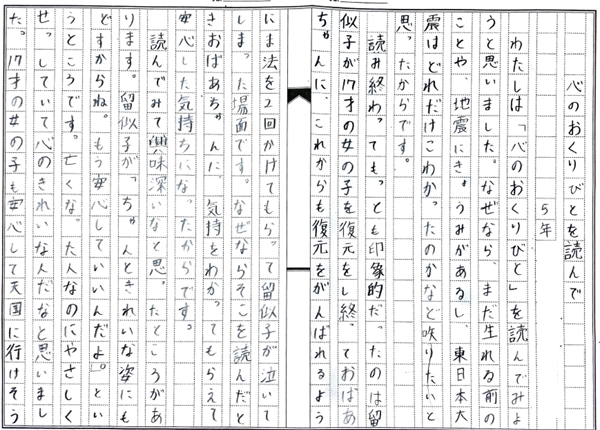 心のおくりびとを読んで
5年
わたしは「心のおくりびと」を読んでみよ
うと思いました。なぜなら、まだ生れる前の
ことや、地震にきょうみがあるし、東日本大
震はどれだけこわかったのかなど知りたいと
思ったからです。
読み終わってもっとも印象的だったのは留
似子が17才の女の子を復元をし終っておばあ
ちゃんに、これからも復元をがんばれるよう
にま法を2回かけてもらって留似子が泣いて
しまった場面です。なぜならそこを読んだと
きおばあちゃんに、気持をわかってもらえて
安心した気持ちになったからです。
読んでみて興味深いなと思ったところがあ
ります。留似子が「ちゃんときれいな姿にも
どすからね。もう安心していいんだよ。」とい
うところです。亡くなった人なのにやさしく
せっしていて心のきれいな人だなと思いまし
た。17才の女の子も安心して天国に行けそう